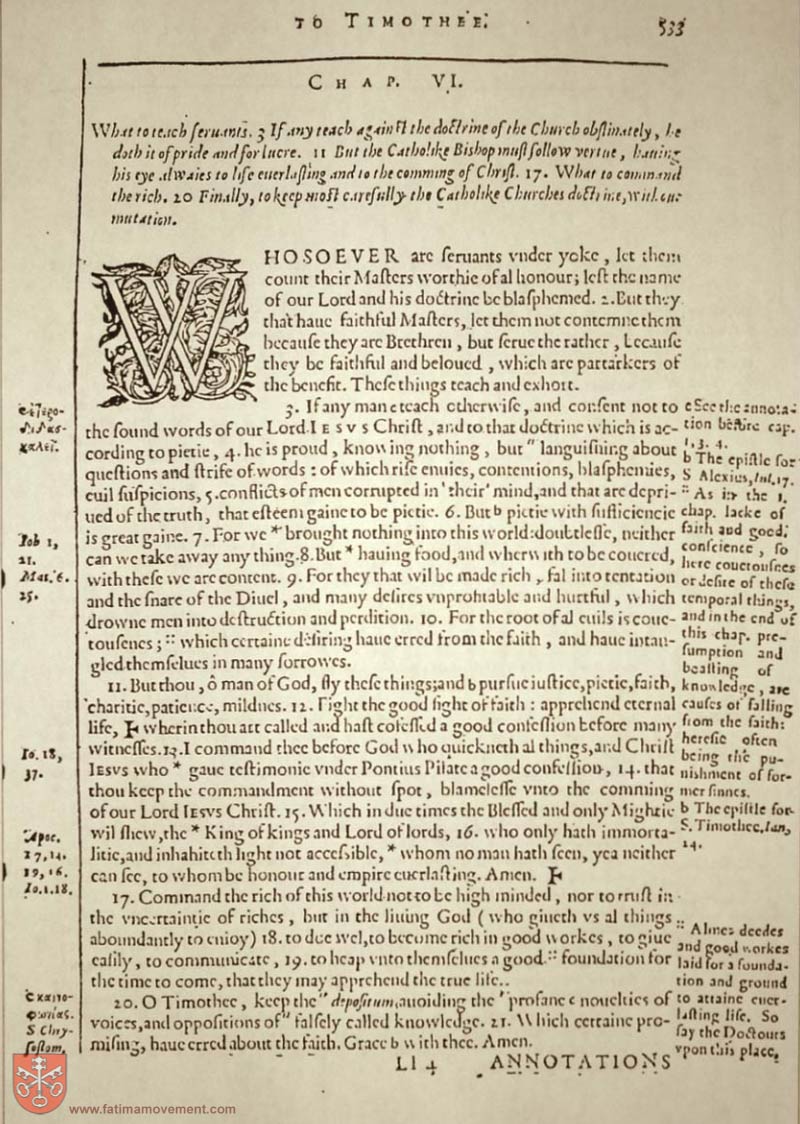 TO TIMOTHEE. 533
CHAP. VI.
What to teach ſeruants. 3 If any teach againſt the doctrine of the Church obſtinately, he
doth it of pride and for lucre. 11 But the Catholike Biſhop muſt follow vertue, hauing
his eye alwaies to life euerlaſting and to the comming of Chriſt. 17. What to command
the rich. 20 Finally, to keep moſt carefully the Catholike Churches doctrine, without
mutation.
WHOSOEVER are ſeruants vnder yoke, let them
count their Maſters worthie of al honour; leſt the name
of our Lord and his doctrine be blaſphemed. 2. But they
that haue faithful Maſters, let them not contemne them
becauſe they are Brethren, but ſerue the rather, becauſe
they be faithful and beloued, which are partakers of
the benefit. Theſe things teach and exhort.
3. If any man teach otherwiſe, and conſent not to
the ſound words of our Lord IESVS Chriſt, and to that doctrine which is ac-
cording to pietie, 4. he is proud, knowing nothing, but " languiſhing about
queſtions and ſtrife of words: of which riſe enuies, contentions, blaſphemies,
euil ſuſpicions, 5. conflicts of men corrupted in ' their' mind, and that are depri-
ued of the truth, that eſteem gaine to be pietie. 6. But b pietie with ſufficiencie
is great gaine. 7. For we * brought nothing into this world: doubtleſſe, neither
can we take away any thing. 8. But * hauing food, and wherwith to be couered,
with theſe we are content. 9. For they that wil be made rich, fal into tentation
and the ſnare of the Diuel, and many deſires vnprofitable and hurtful, which
drowne men into deſtruction and perdition. 10. For the root of al euils is coue-
touſnes; :: which certaine deſiring haue erred from the faith, and haue intan-
gled themſelues in many ſorrowes.
11. But thou, ô man of God, fly theſe things; and b purſue iuſtice, pietie, faith,
charitie, patience, mildnes. 12. Fight the good fight of faith: apprehend eternal
life, wherin thou art called and haſt cofeſſed a good confeſſion before many
witneſſes. 13. I command thee before God who quickneth al things, and Chriſt
IESVS who * gaue teſtimonie vnder Pontius Pilate a good confeſſion, 14. that
thou keep the commandment without ſpot, blameleſſe vnto the comming
of our Lord IESVS Chriſt. 15. Which in due times the Bleſſed and only Mightie
wil ſhew, the * King of kings and Lord of lords, 16. who only hath immorta-
litie, and inhabiteth light not acceſſible, * whom no man hath ſeen, yea neither
can ſee, to whom be honour and empire euerlaſting. Amen.
17. Command the rich of this world not to be high minded, nor to truſt in
the vncertaintie of riches, but in the liuing God (who giueth vs al things
aboundantly to enioy) 18. to doe wel, to become rich in good workes, to giue
eaſily, to communicate, 19. to heap vnto themſelues a good :: foundation for
the time to come, that they may apprehend the true life.
20. O Timothee, keep the " depoſitum, auoiding the ' profane nouelties of
voices, and oppoſitions of " falſely called knowledge. 21. Which certaine pro-
miſing, haue erred about the faith. Grace b with thee. Amen.
Ll 4 ANNOTATIONS
Iob 1,
21.
Mat. 6.
25.
Io. 18,
37.
Apoc.
17, 14.
19, 16.
Io. 1. 18.
S Chry-
ſoſtom,
See the annota-
tion before cap.
1. 3. 4.
b The epiſtle for
S Alexius, Iul. 17.
:: As in the 1.
chap. lacke of
faith and good
conſcience, ſo
here couetouſnes
or deſire of theſe
temporal things,
and in the end of
this chap. pre-
ſumption and
boaſting of
knowledge, are
cauſes of falling
from the faith:
hereſie often
being the pu-
niſhment of for-
mer ſinnes.
b The epiſtle for
S. Timothee, Ian,
24.
:: Almes deedes
and good workes
laid for a founda-
tion and ground
to attaine euer-
laſting life. So
ſay the Doctours
vpon this place,
www.fatimamovement.com